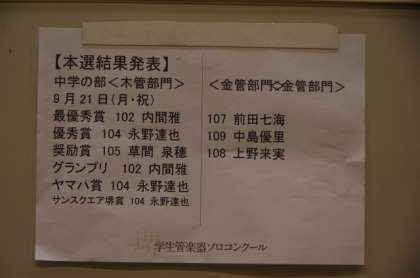 【本選結果発表】
中学の部＜木管部門＞
9月21日(月・祝)
最優秀賞 102 内間雅
優秀賞 104 永野達也
奨励賞 105 草間 泉穂
グランプリ 102 内間雅
ヤマハ賞 104 永野達也
サンスクエア堺賞 104 永野達也
＜金管部門◇金管部門＞
107 前田七海
109 中島優里
108 上野来実
堺学生管楽器ソロコンクール